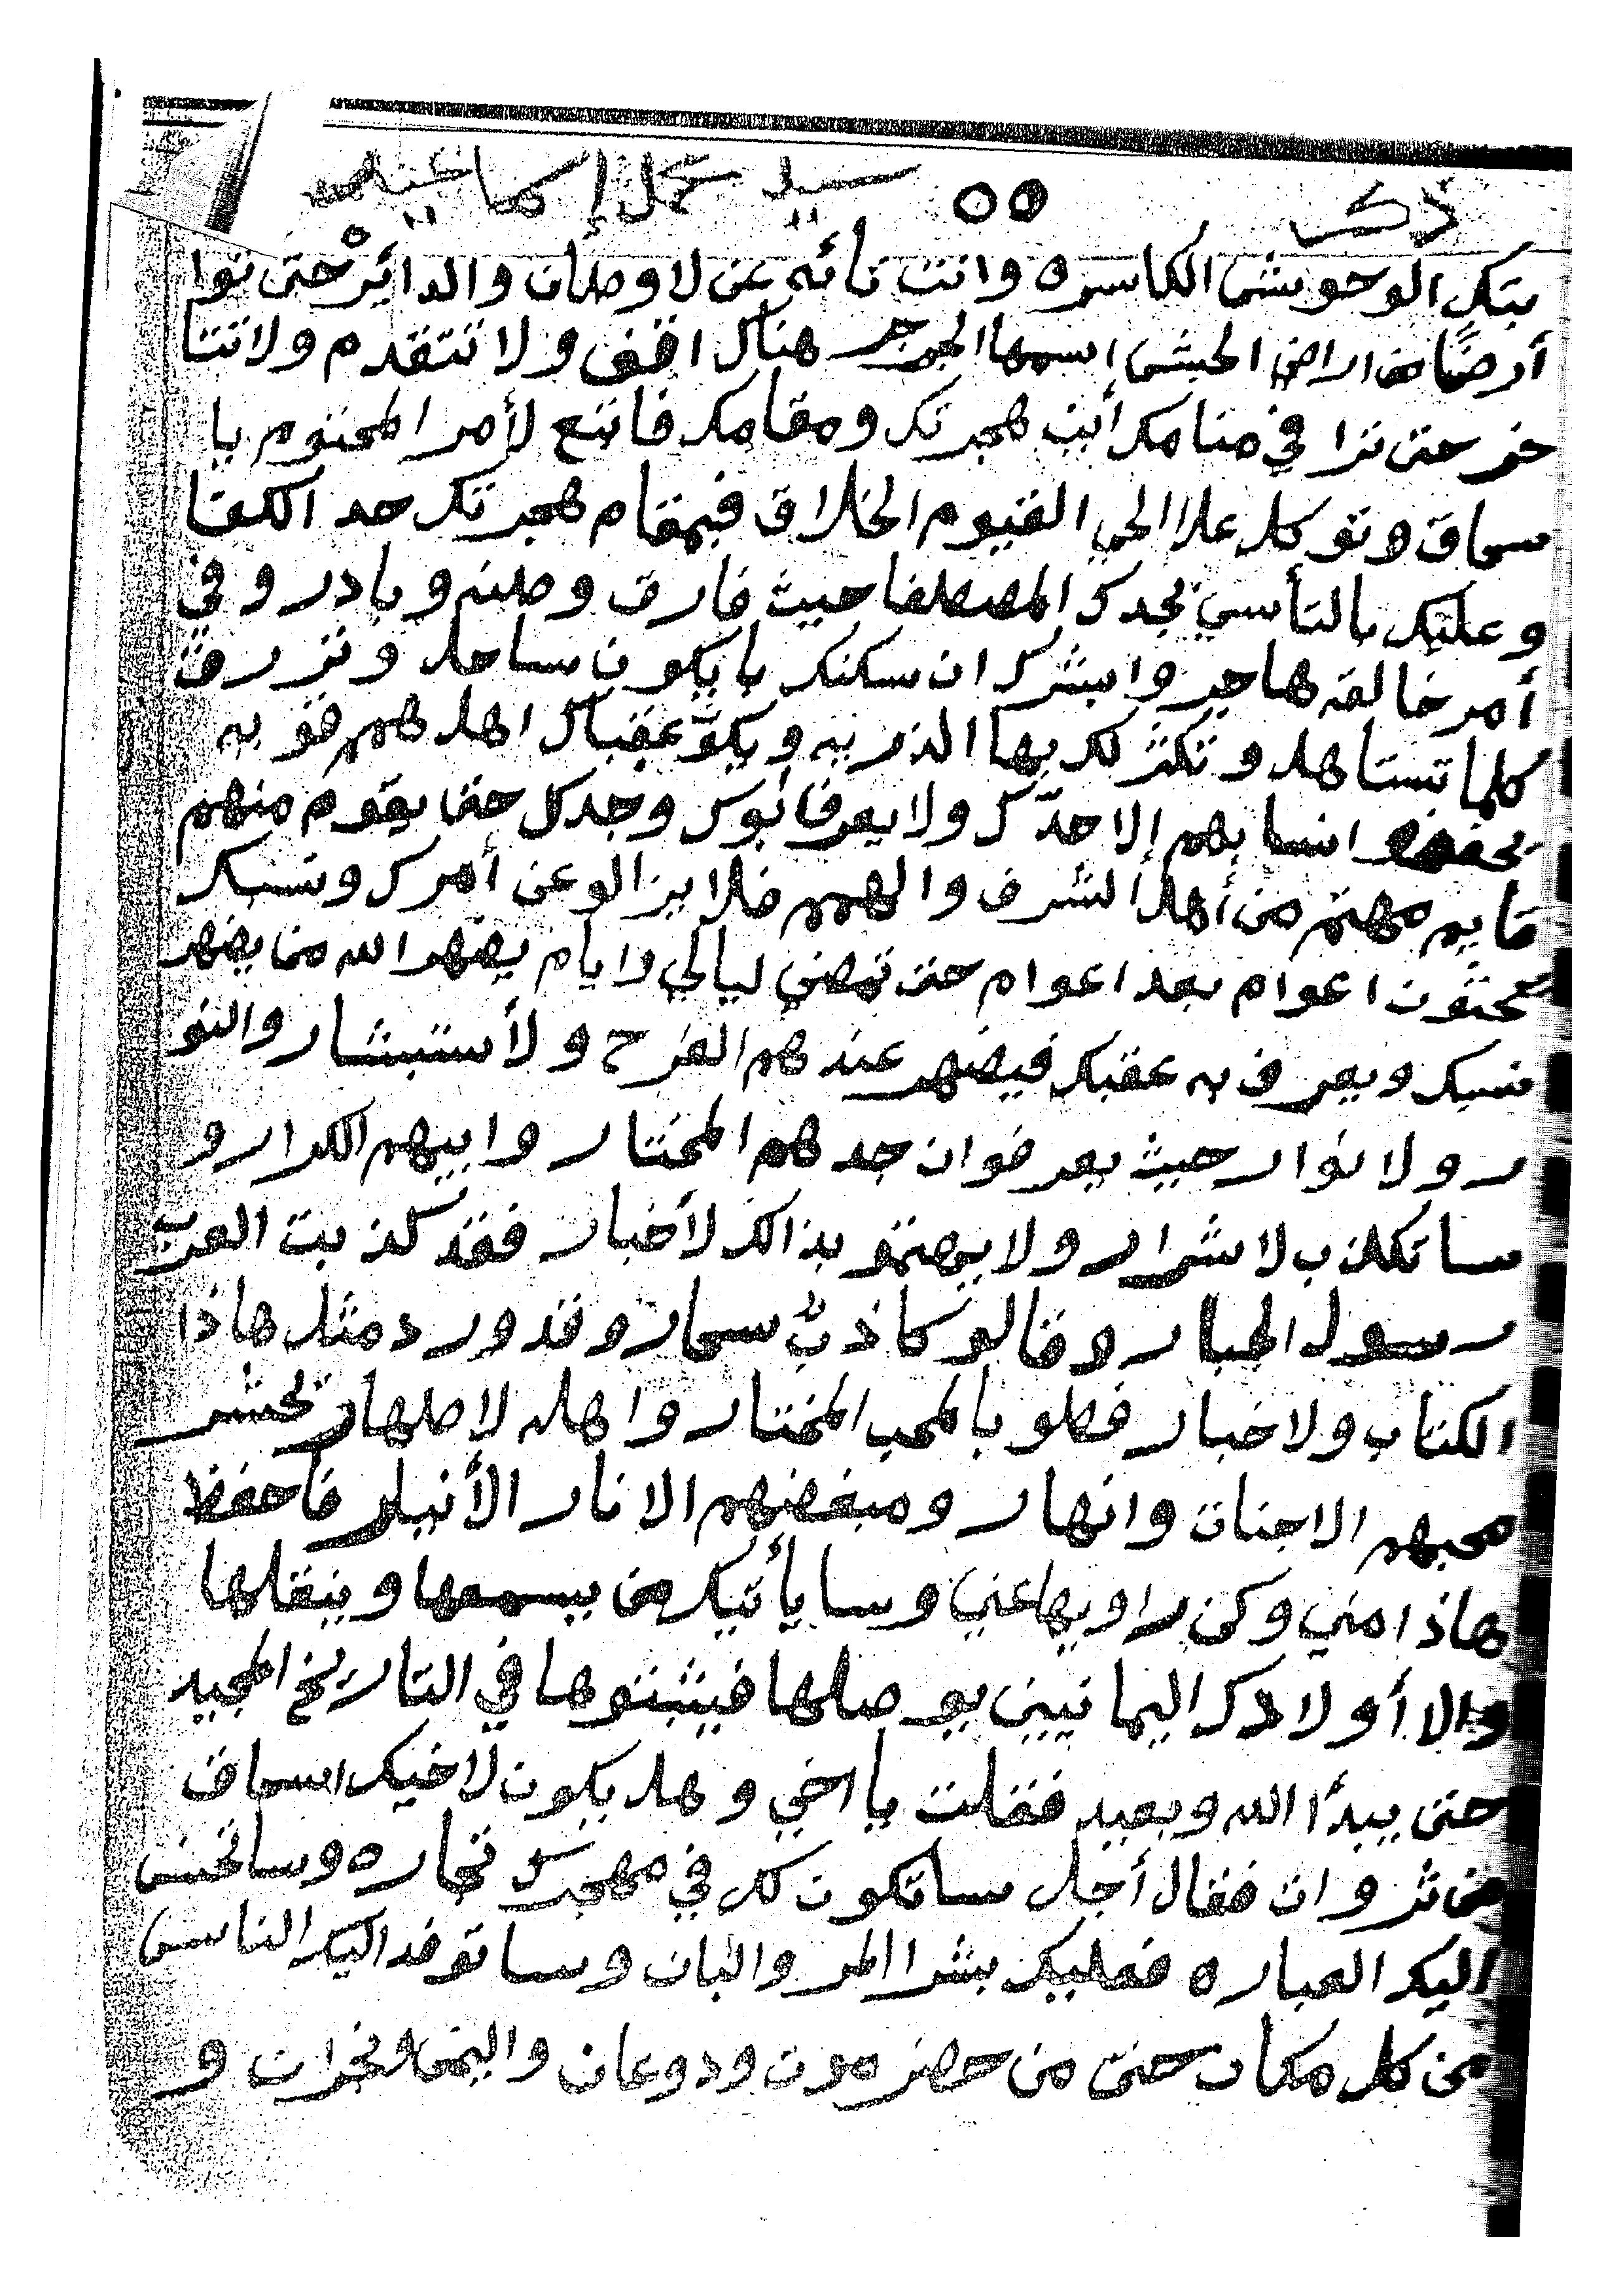 ذكر ٥٥ سيد محمد إسماعيل
بتك الوحوش الكاسره وانت تائه عن لاوطان والدائر حتى توا
أرضًا من اراض الحبش اسمها الجرجر هناك اقف ولا تتقدم ولا تتا
خر حتى ترا في منامك أين هجرتك ومقامك فاتبع لأمر المحتوم يا
سحاق وتوكل علا الحي القيوم الخلاق فبمقام هجرتك حد الكفا
وعليك بالتأسي بجدك المصطفا حيث فارق وطنه وبادر وفي
أمر خالقه هاجر وابشرك ان سكنك يايكون ساحل وترزق
كلما تستاهل وتكثر لك بها الذريه ويكو عقبك اهل همم قويه
يحفضو انسابهم إلا حدّك ولا يعرفا أبوك وجدك حتا يقوم منهم
قايم مهتم من أهل الشرف والهمم فلا يزالو عن أمرك ونسبك
يبحثون اعوام بعد اعوام حتى تمضي ليالي وايام يضهر الله من يضهر
نسبك ويعرف به عقبك فيضهر عندهم الفرح ولأستبشار والنو
ر ولانوار حيث يعرفوان جدهم المختار وابيهم الكرار و
ساتكذب لاشرار ولا يهتمو بذالك لأخبار فقد كذبت العرب
رسول الجبار وقالو كاذبٌ سحار وقد ورد مثل هاذا
الكتاب ولاخبار فطوبا لمحب المختار واهله لاطهار يحشر
محبهم الاجنات وانهار ومبغضهم الا نار الأنيار فاحفظ
هاذا مني وكن راويها عني وسايأتيك من يسمعها وينقلها
والا أولادك اليمانيين يوصلها فيثبتوها في التاريخ المجيد
حتى يبدأ الله ويعيد فقلت يا اخي وهل يكون لاخيك اسحاق
من ثروات فقال أجل ساتكون لك في مهجرك تجاره وساتحسن
اليك العباره فعليك بشرا المر والبان وساتوفد اليك الناس
من كل مكان حتى من حضرموت ودوعان واليمن ونجران و